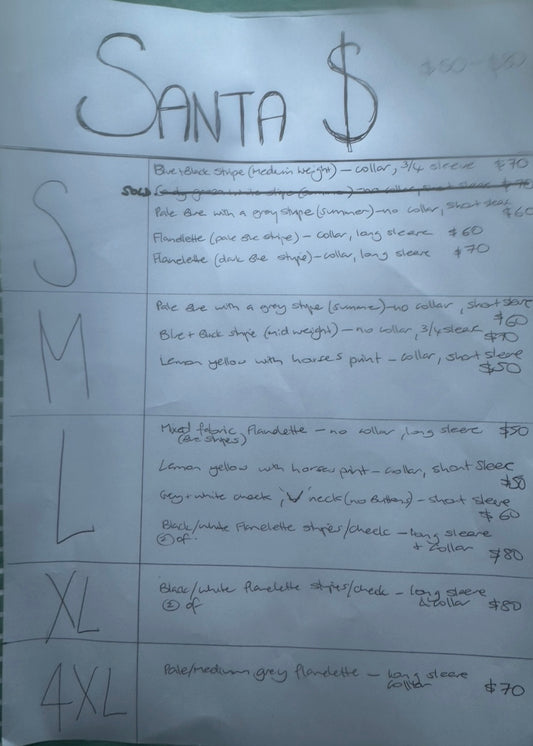 SANTA $
S
Blue + Black stripe (medium weight) – collar, 3/4 sleeve $70
SOLD
Pale blue with a grey stripe (summer) – no collar, short sleeve
$60
Flanelette (pale blue stripe) – collar, long sleeve $60
Flanelette (dark blue stripe) – collar, long sleeve $70
M
Pale blue with a grey stripe (summer) – no collar, short sleeve
$60
Blue + Black stripe (mid weight) – no collar, 3/4 sleeve
$70
Lemon yellow with horses print – collar, short sleeve
$50
L
Mixed fabric, flanelette – no collar, long sleeve $50
(blue stripes)
Lemon yellow with horses print – collar, short sleeve
$50
Grey + white check 'V' neck (no buttons) – short sleeve
$60
Black/white flanelette stripes/check – long sleeve
② of. + collar
$80
XL
Black/white flanelette stripes/check – long sleeve
② of & collar $80
4XL
Pale/medium grey flanelette – long sleeve
collar $70